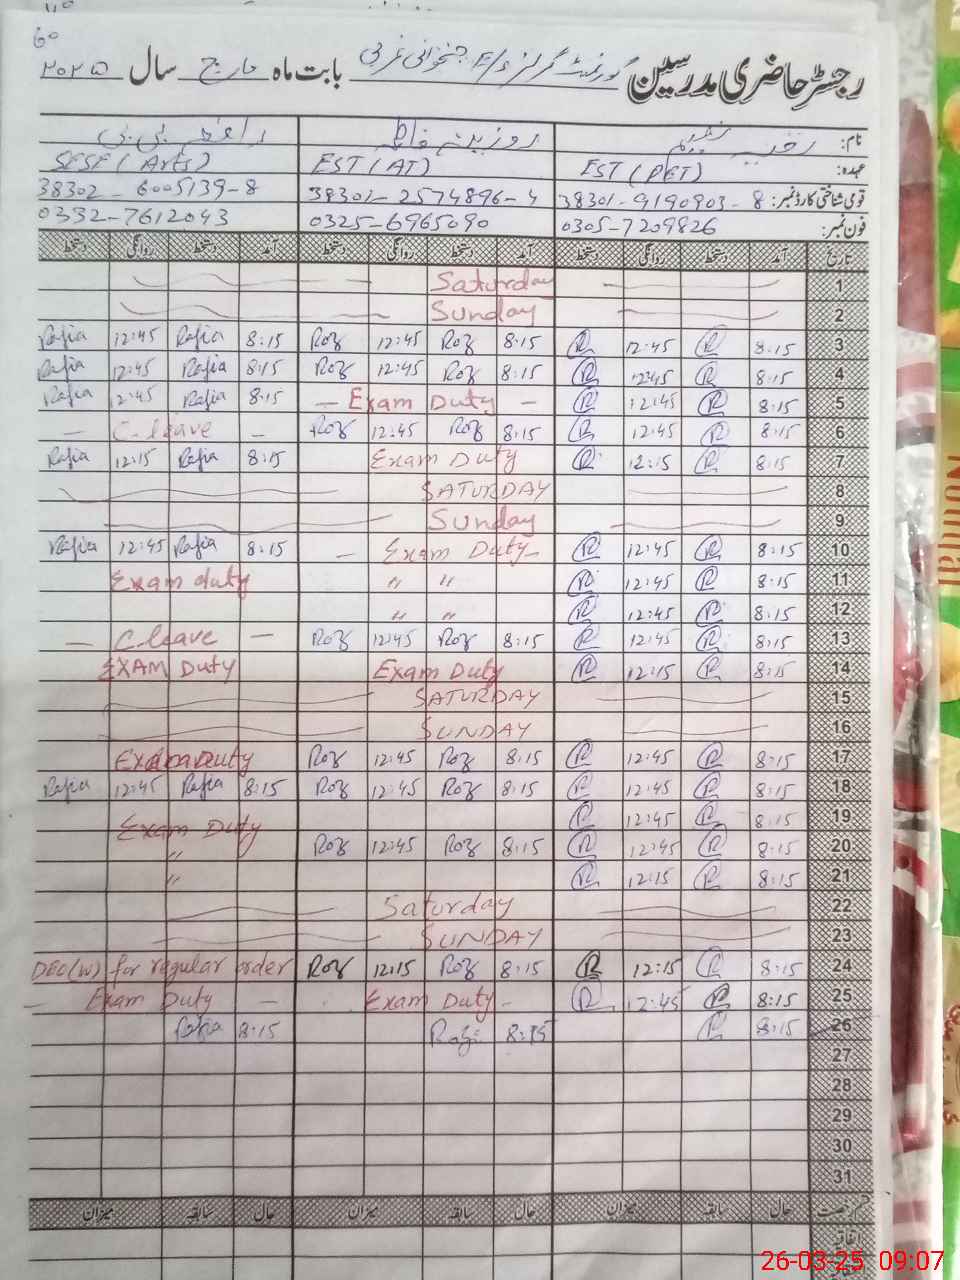 60
رجسٹر حاضری مدرسین گورنمنٹ گرلز E/S غربی بابت ماہ مارچ سال ۲۰۲۵
نام: رقیہ روزینہ فاطمہ رافعہ بی بی
عہدہ: EST (PET) EST (AT) SESE (Arts)
قومی شناختی کارڈ نمبر: 38301-9190903-8 38301-2574896-4 38302-6005139-8
فون نمبر: 0305-7209826 0325-6965090 0332-7612043
تاریخ آمد دستخط روانگی دستخط آمد دستخط روانگی دستخط آمد دستخط روانگی دستخط
1 Saturday
2 Sunday
3 8:15 R 12:45 R 8:15 Roz 12:45 Roz 8:15 Rafia 12:45 Rafia
4 8:15 R 12:45 R 8:15 Roz 12:45 Roz 8:15 Rafia 12:45 Rafia
5 8:15 R 12:45 R — Exam Duty — 8:15 Rafia 12:45 Rafia
6 8:15 R 12:45 R 8:15 Roz 12:45 Roz — C.leave —
7 8:15 R 12:15 R Exam Duty 8:15 Rafia 12:15 Rafia
8 SATURDAY
9 Sunday
10 8:15 R 12:45 R — Exam Duty — 8:15 Rafia 12:45 Rafia
11 8:15 R 12:45 R " " Exam duty
12 8:15 R 12:45 R " "
13 8:15 R 12:45 R 8:15 Roz 12:45 Roz — C.leave —
14 8:15 R 12:15 R Exam Duty EXAM Duty
15 SATURDAY
16 SUNDAY
17 8:15 R 12:45 R 8:15 Roz 12:45 Roz Exam Duty
18 8:15 R 12:45 R 8:15 Roz 12:45 Roz 8:15 Rafia 12:45 Rafia
19 8:15 R 12:45 R Exam Duty
20 8:15 R 12:45 R 8:15 Roz 12:45 Roz "
21 8:15 R 12:15 R "
22 Saturday
23 SUNDAY
24 8:15 R 12:15 R 8:15 Roz 12:15 Roz DEO(W) for regular order
25 8:15 R 12:45 R Exam Duty — — Exam Duty —
26 8:15 R 8:15 8:15 Rafia
27
28
29
30
31
رخصت حال سابقہ میزان حال سابقہ میزان حال سابقہ میزان
اتفاقیہ
26-03-25 09:07